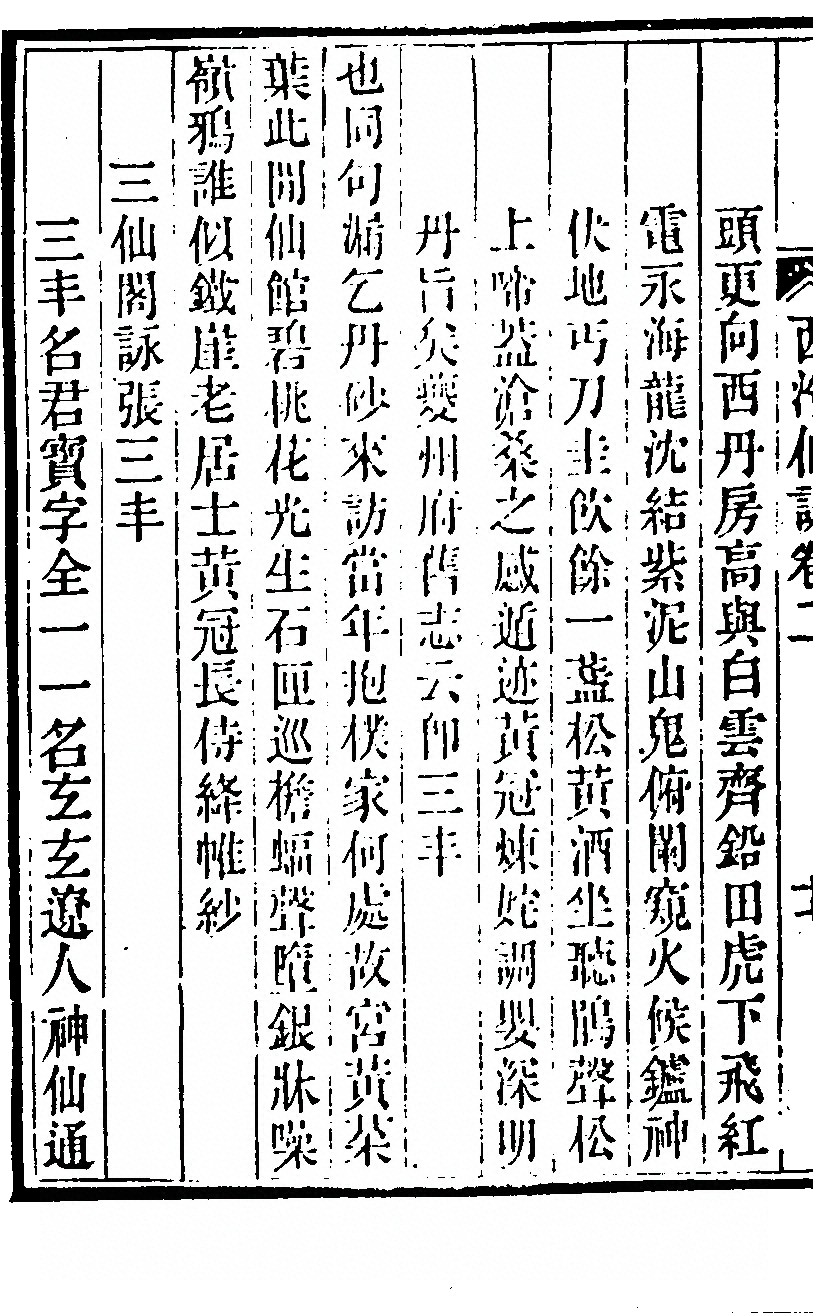 西泠仙詠卷二
十
頭更向西丹房高與白雲齊鉛田虎下飛紅
電汞海龍沈結紫泥山鬼俯闌窺火候鑪神
伏地丐刀圭飲餘一盞松黃酒坐聽鵑聲松
上啼蓋滄桑之感遁迹黃冠煉姹調嬰深明
丹旨矣夔州府舊志云卽三丰
也同句漏乞丹砂來訪當年抱樸家何處故宮黃菜
葉此間仙館碧桃花光生石匣巡檐蝠聲墮銀牀噪
嶺鴉誰似鐵崖老居士黃冠長侍絳帷紗
三仙閣詠張三丰
三丰名君寶字全一一名玄玄遼人神仙通